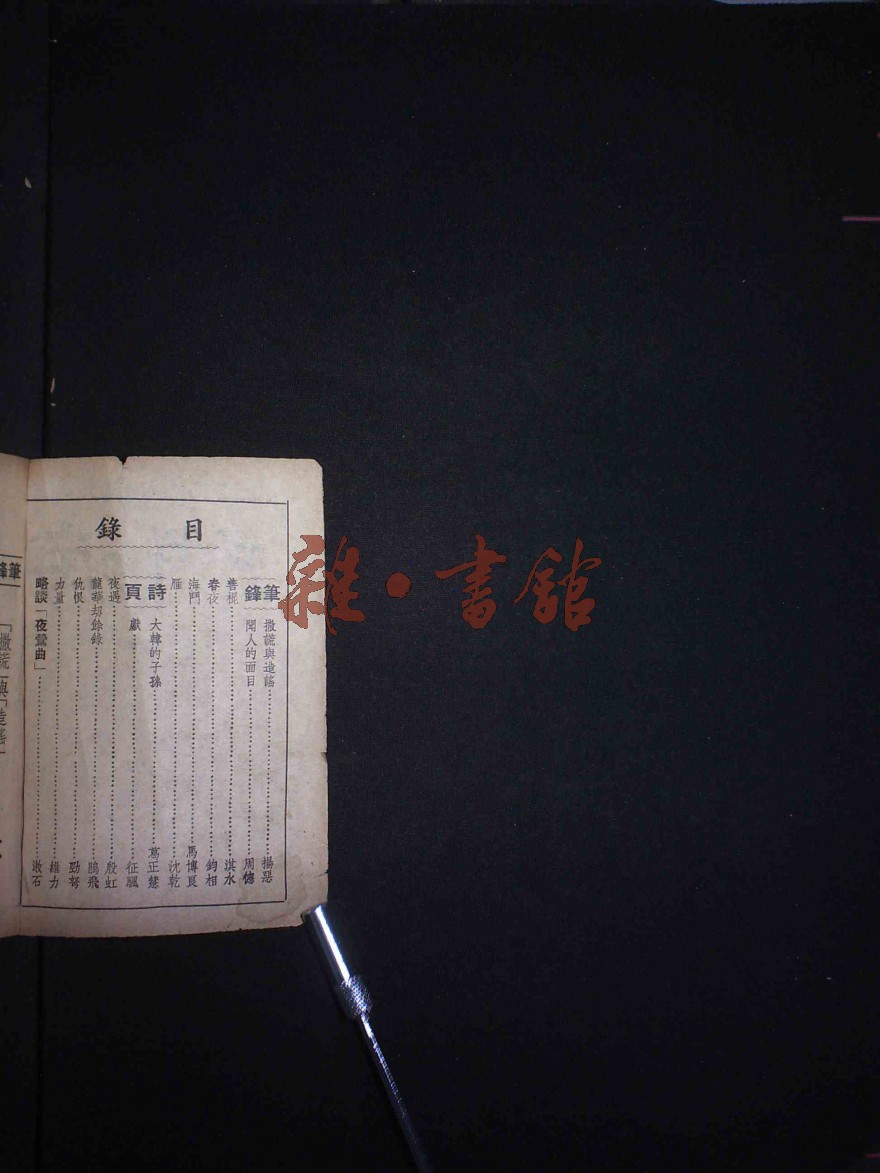 目錄
筆鋒
撒謊與造謠……揚惡
聞人的面目……周德
善棍……淇水
春夜……鈞相
海門……馬博良
雁……沈乾
詩頁
大韓的子孫……葛正慧
獻……征驪
夜遇……殷虹
龍華刼餘錄……鵬飛
仇恨……勁弩
力量……維力
略談「夜鶯曲」……漱石
筆鋒
「撒謊」與「造謠」
雜·書館